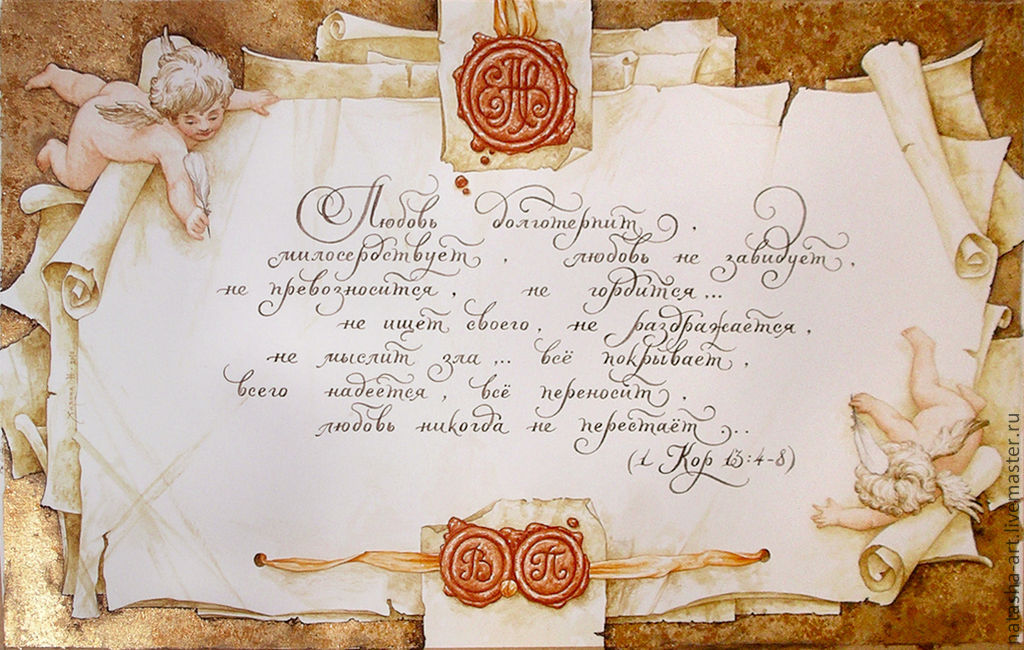 Любовь долготерпит,
милосердствует, любовь не завидует,
не превозносится, не гордится...
не ищет своего, не раздражается,
не мыслит зла ... всё покрывает,
всего надеется, всё переносит,
любовь никогда не перестаёт...
(1 Кор 13:4-8)
В П
natasha-art.livemaster.ru